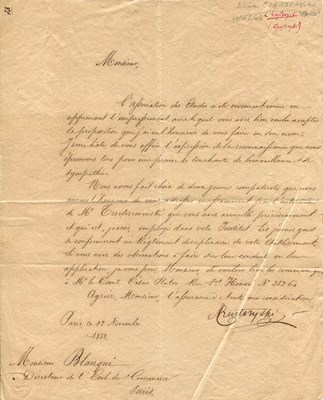 Monsieur,
L'Association des Etudes a été vivement émue en
apprenant l'empressement avec lequel vous avez bien voulu accepter
la proposition que j'ai eu l'honneur de vous faire en son nom.
J'ai me hâte de vous offrir l'expression de la reconnaissance que nous
éprouvons tous pour une preuve si touchante de bienveillance et de
sympathie.
Nous avons fait choix de deux jeunes compatriotes que nous
avons l'honneur de vous
de Mr que vous avez accueilli précédemment
et qui est, je crois, employé dans votre Institut. Les jeunes gens
se conformeront au Règlement disciplinaire de votre Etablissement,
si vous avez des observations à faire sur leur conduite ou leur
application, je vous prie Monsieur de vouloir bien les communiquer
à Mr le Comte Plater Rue St Honoré No
Agréez, Monsieur, l'assurance de toute ma considération
Czartoryski
Paris ce 12 Novembre
Monsieur Blanqui
Directeur de l'Ecole de Commerce
Paris